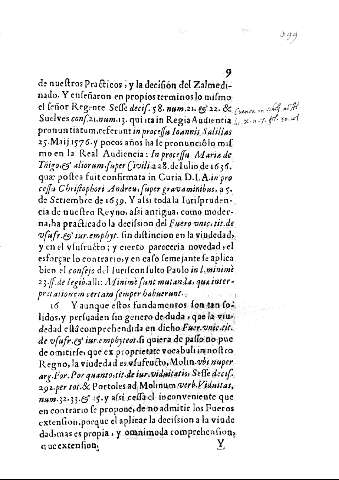 299
9
de nuestros Practicos; y la decisión del Zalmedi-
nado. Y enseñaron en propios terminos lo mismo
el señor Regente Sesse decis. 58. num. 21. & 22. &
Suelves cons. 21. num. 13. qui ita in Regia Audientia
pronuntiatum, referunt in processu Ioannis Salillas
25. Maij 1576. y pocos años ha le pronunciò lo mis
mo en la Real Audiencia: In processu Mariæ de
Iñigo, & aliorum, super Civili a 28. de Iulio de 1636.
quæ postea fuit confirmata in Curia D. I. A. in pro
cessu Christophori Andreu, super gravaminibus, a 5.
de Setiembre de 1639. Y assi toda la Iurispruden-
cia de nuestro Reyno, assi antigua, como moder-
na, ha practicado la decision del Fuero vnic. tit. de
vsufr. & iur. emphyt. sin distincion en la viudedad,
y en el vsufructo; y cierto pareceria novedad, el
esforçar lo contrario, y en caso semejante se aplica
bien el consejo del Iurisconsulto Paulo in l. minimè
23. ff. de legib. alli: Minimè sunt mutanda, quæ inter-
pretationem certam semper habuerunt.
16 Y aunque estos fundamentos son tan so-
lidos, y persuaden sin genero de duda, que la viu-
dedad està comprehendida en dicho Fuer. vnic. tit.
de vsufr. & iur. emphyteot. si quiera de passo no pue
de omitirse, que ex proprietate vocabuli in nostro
Regno, la viudedad es vsufructo, Molin. vbi nuper
arg. For. Por quanto, tit. de iur. viduitatis, Sesse decis.
292. per tot. & Portoles ad Molinum verb. Viduitas,
num. 32. 33. & 15. y assi cessa el inconveniente que
en contrario se propone, de no admitir los Fueros
extension, porque el aplicar la decission a la viude
dad, mas es propia, y omnimoda comprehension,
que extension. Y